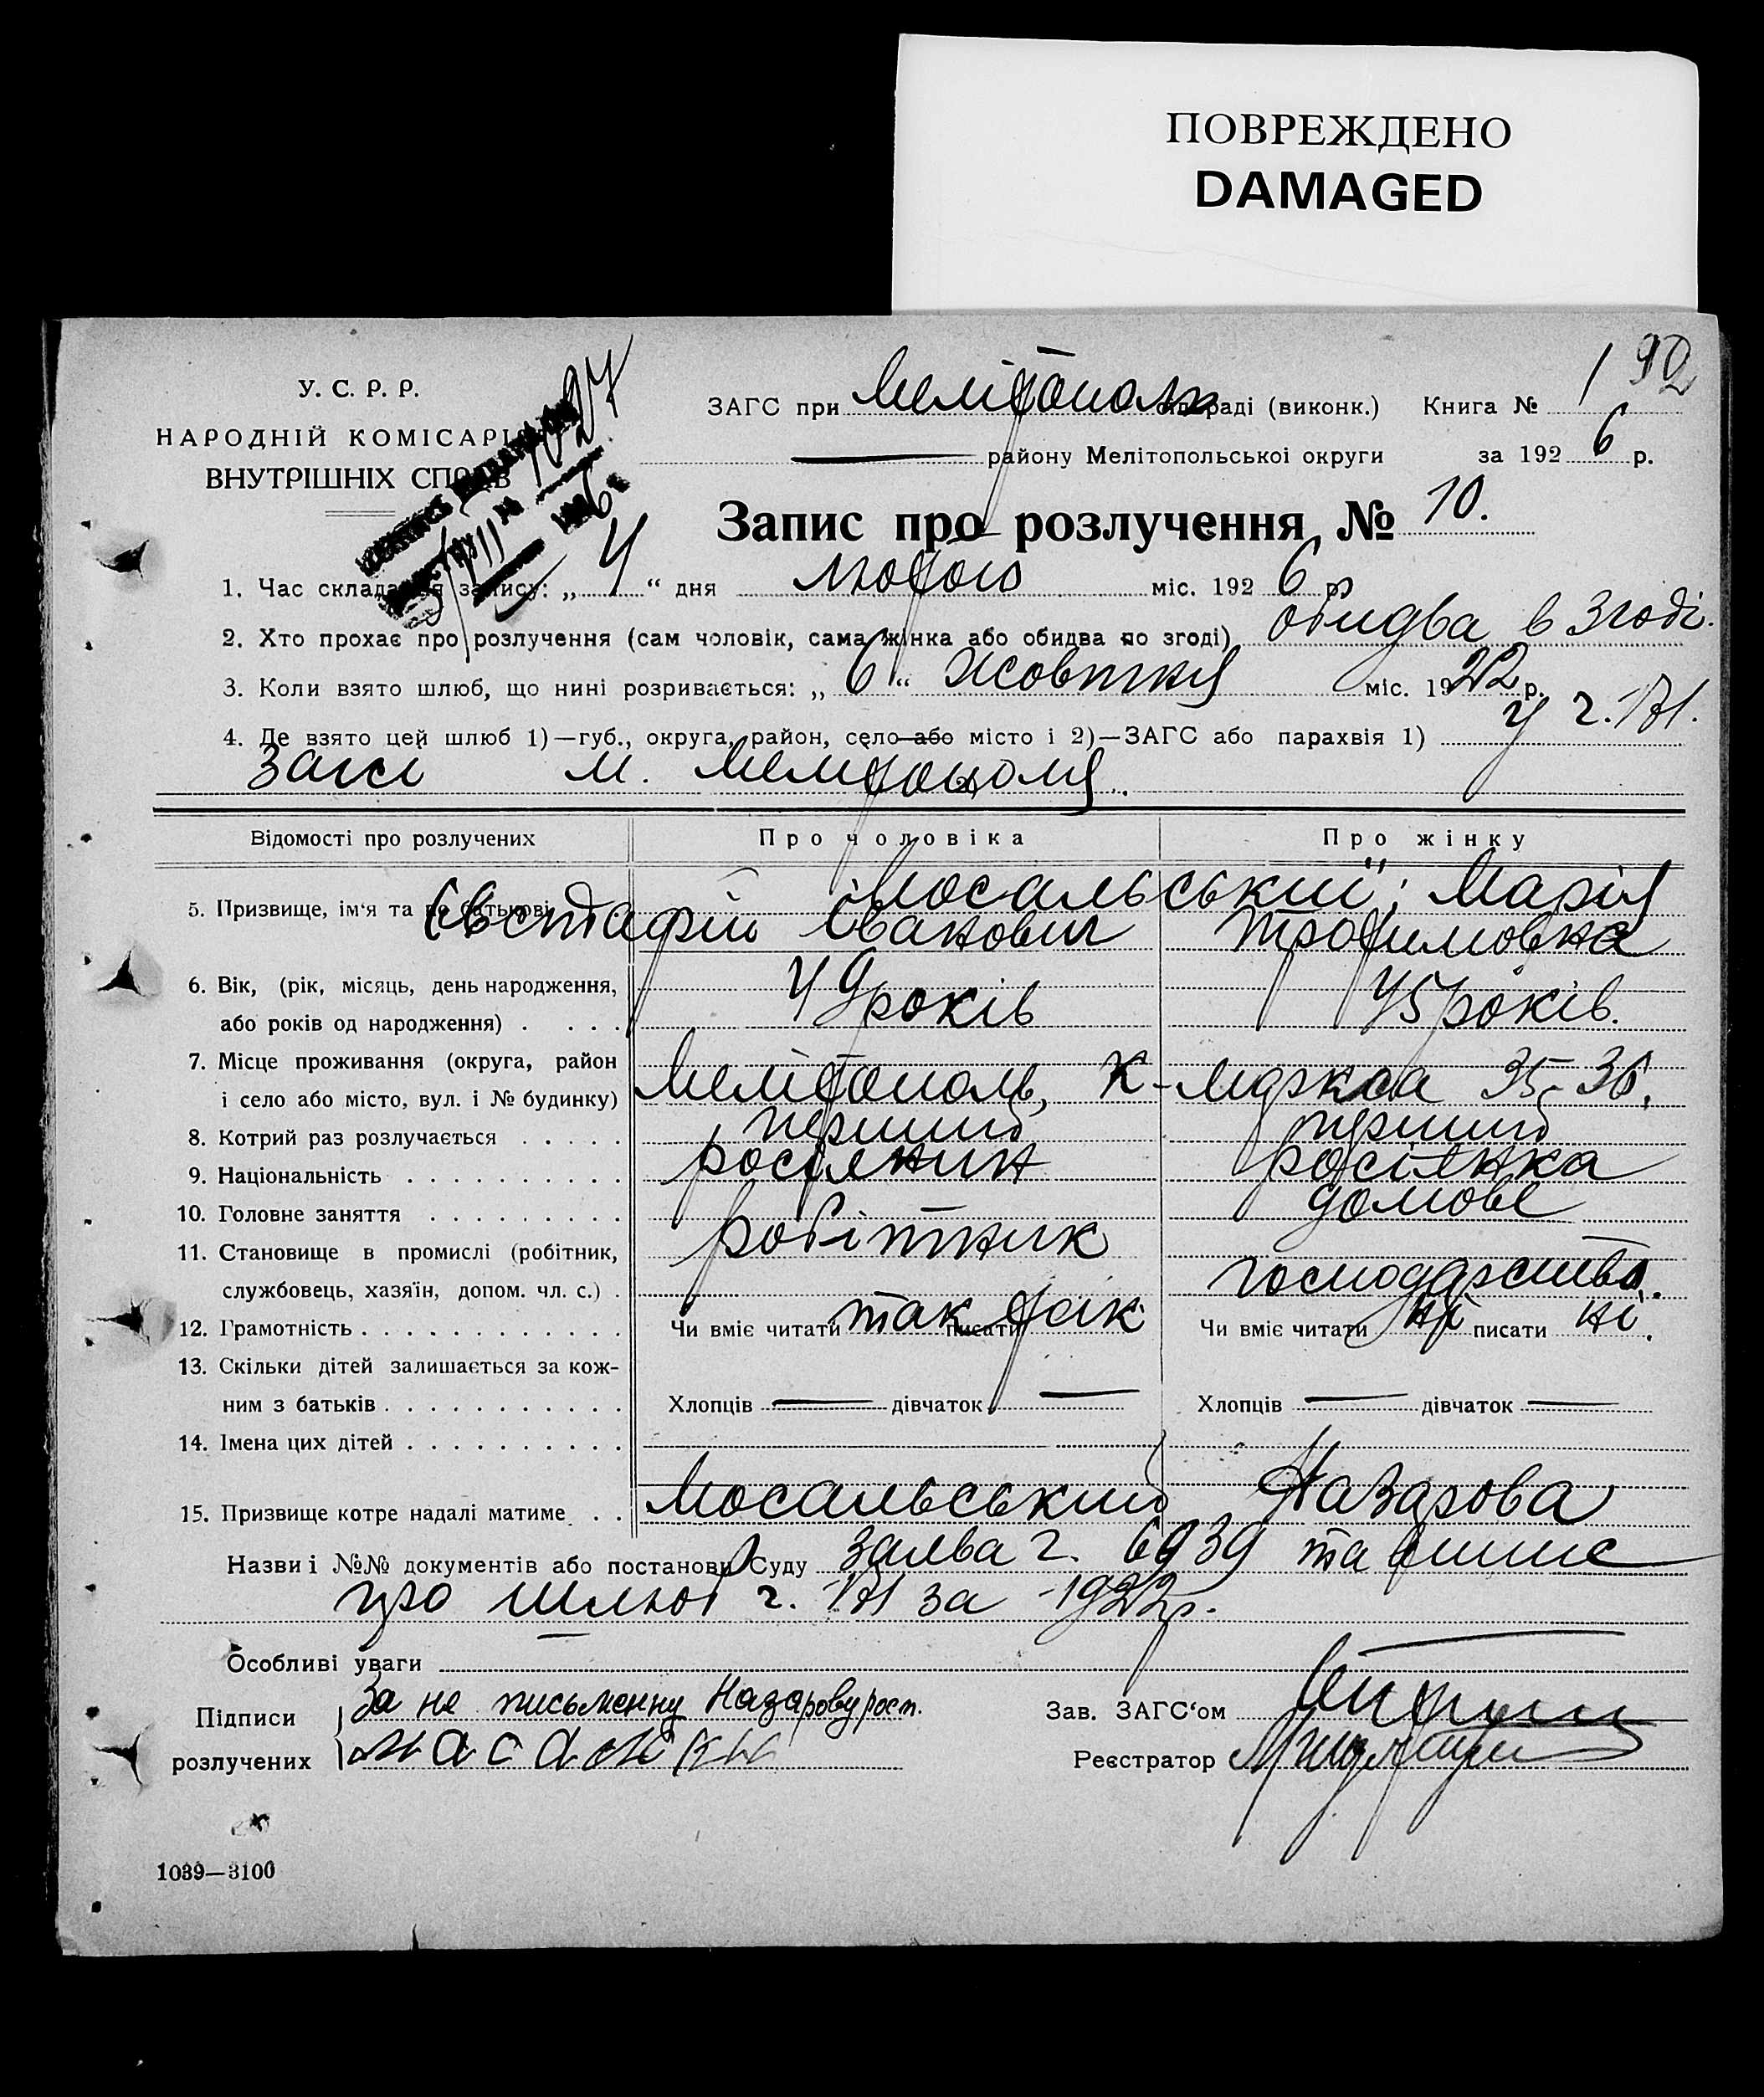 ПОВРЕЖДЕНО
DAMAGED
192
У. С. Р. Р.
НАРОДНІЙ КОМІСАРІЯТ
ВНУТРІШНІХ СПРАВ
ЗАГС при Мелітополь раді (виконк.) Книга № 1
— району Мелітопольської округи за 1926 р.
Запис про розлучення № 10.
1. Час складання запису: „ 4 “ дня лютого міс. 1926 р.
2. Хто прохає про розлучення (сам чоловік, сама жінка або обидва по згоді) обидва в згоді.
3. Коли взято шлюб, що нині розривається: „ 6 “ жовтня міс. 1922 р.
4. Де взято цей шлюб 1)—губ., округа, район, село або місто і 2)—ЗАГС або парахвія 1) у ч. 171.
Загсі м. Мелітополя.
Відомості про розлучених Про чоловіка Про жінку
5. Призвище, ім‘я та по батькові Мосальський; Марія
Євстафій Іванович Трофимовна
6. Вік, (рік, місяць, день народження,
або років од народження) 49 років 45 років.
7. Місце проживання (округа, район
і село або місто, вул. і № будинку) Мелітополь, К-Маркса 35-36,
8. Котрий раз розлучається перший перший
9. Національність росіянин росіянка
10. Головне заняття домове
11. Становище в промислі (робітник, робітник
службовець, хазяїн, допом. чл. с.) господарство.
12. Грамотність Чи вміє читати так писати так Чи вміє читати ні писати ні.
13. Скільки дітей залишається за кож-
ним з батьків Хлопців — дівчаток — Хлопців — дівчаток —
14. Імена цих дітей
15. Призвище котре надалі матиме Мосальський Назарова
Назви і №№ документів або постанови Суду заява ч. 6939 та
про шлюб ч. 171 за 1922 р.
Особливі уваги
Підписи За не письменну Назарову росп.
розлучених
Зав. ЗАГС‘ом
Реєстратор
1039—3100